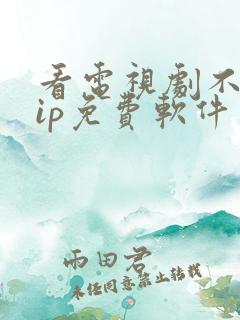 看電視劇不
ip免費軟件
雨田君
未経同意禁止转载